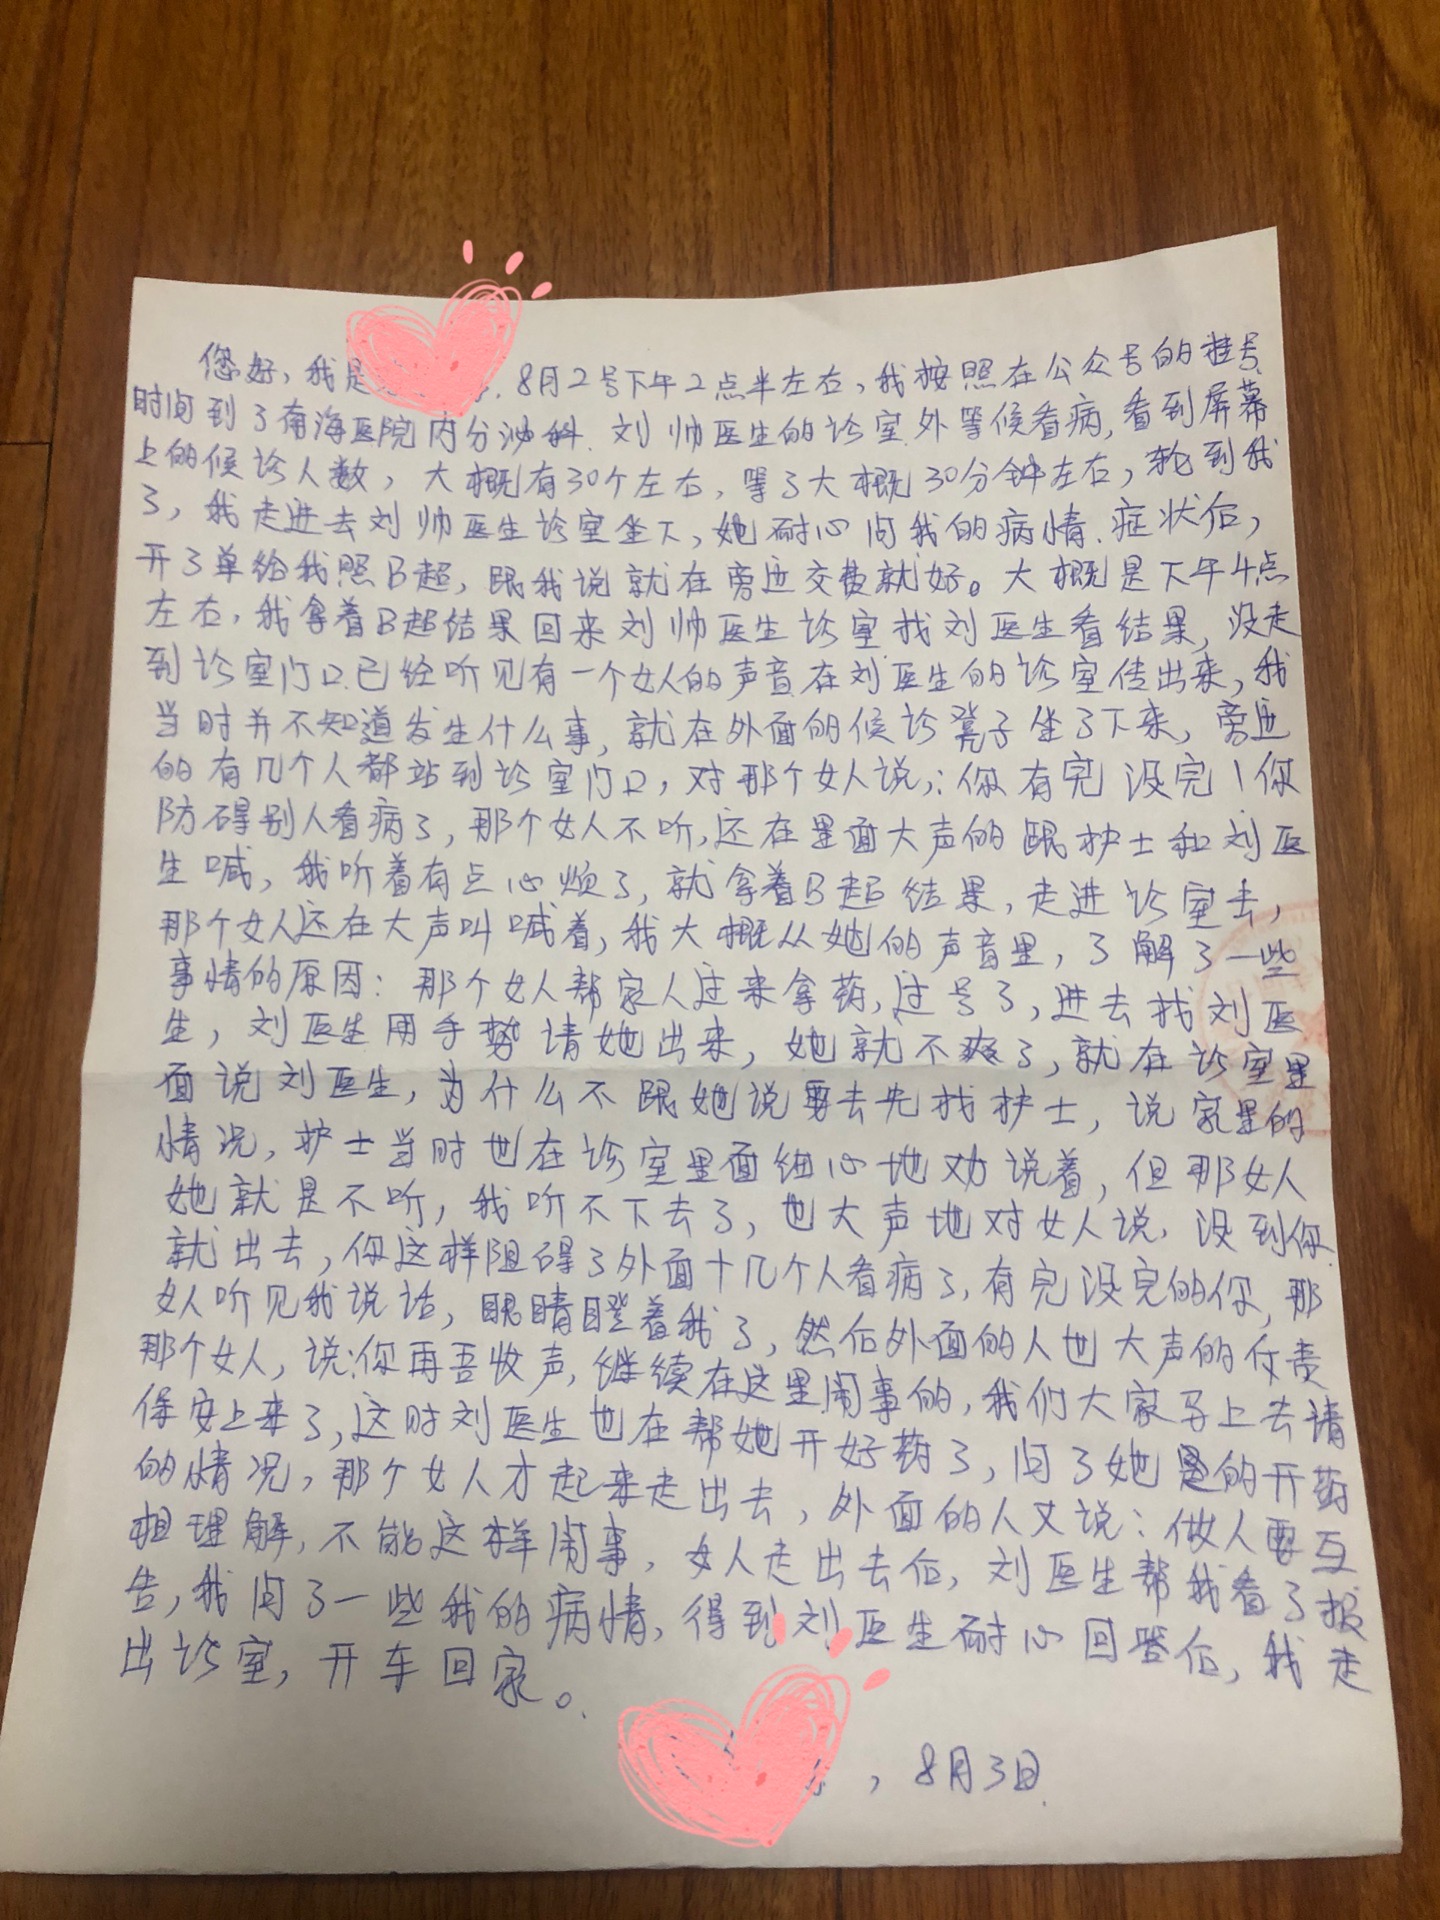 您好，我是 8月2号下午2点半左右，我按照在公众号的挂号
时间到了南海医院内分泌科.刘帅医生的诊室外等候看病，看到屏幕
上的候诊人数，大概有30个左右，等了大概30分钟左右，轮到我
了，我走进去刘帅医生诊室坐下，她耐心问我的病情.症状后，
开了单给我照B超，跟我说就在旁边交费就好。大概是下午4点
左右，我拿着B超结果回来刘帅医生诊室找刘医生看结果，没走
到诊室门口已经听见有一个女人的声音在刘医生的诊室传出来，我
当时并不知道发生什么事，就在外面的候诊凳子坐了下来，旁边
的有几个人都站到诊室门口，对那个女人说：你有完没完！你
防碍别人看病了，那个女人不听，还在里面大声的跟护士和刘医
生喊，我听着有点心烦了，就拿着B超结果，走进诊室去，
那个女人还在大声叫喊着，我大概从她的声音里，了解了一些
事情的原因：那个女人帮家人过来拿药，过号了，进去找刘医
生，刘医生用手势请她出来，她就不爽了，就在诊室里
面说刘医生，为什么不跟她说要去先找护士，说家里的
情况，护士当时也在诊室里面细心地劝说着，但那女人
她就是不听，我听不下去了，也大声地对女人说，没到你
就出去，你这样阻碍了外面十几个人看病了，有完没完的你，那
女人听见我说话，眼睛瞪着我了，然后外面的人也大声的
那个女人，说：你再吾收声，继续在这里闹事的，我们大家马上去请
保安上来了，这时刘医生也在帮她开好药了，问了她的开药
的情况，那个女人才起来走出去，外面的人又说：做人要互
相理解，不能这样闹事，女人走出去后，刘医生帮我看了报
告，我问了一些我的病情，得到刘医生耐心回答后，我走
出诊室，开车回家。
，8月3日.